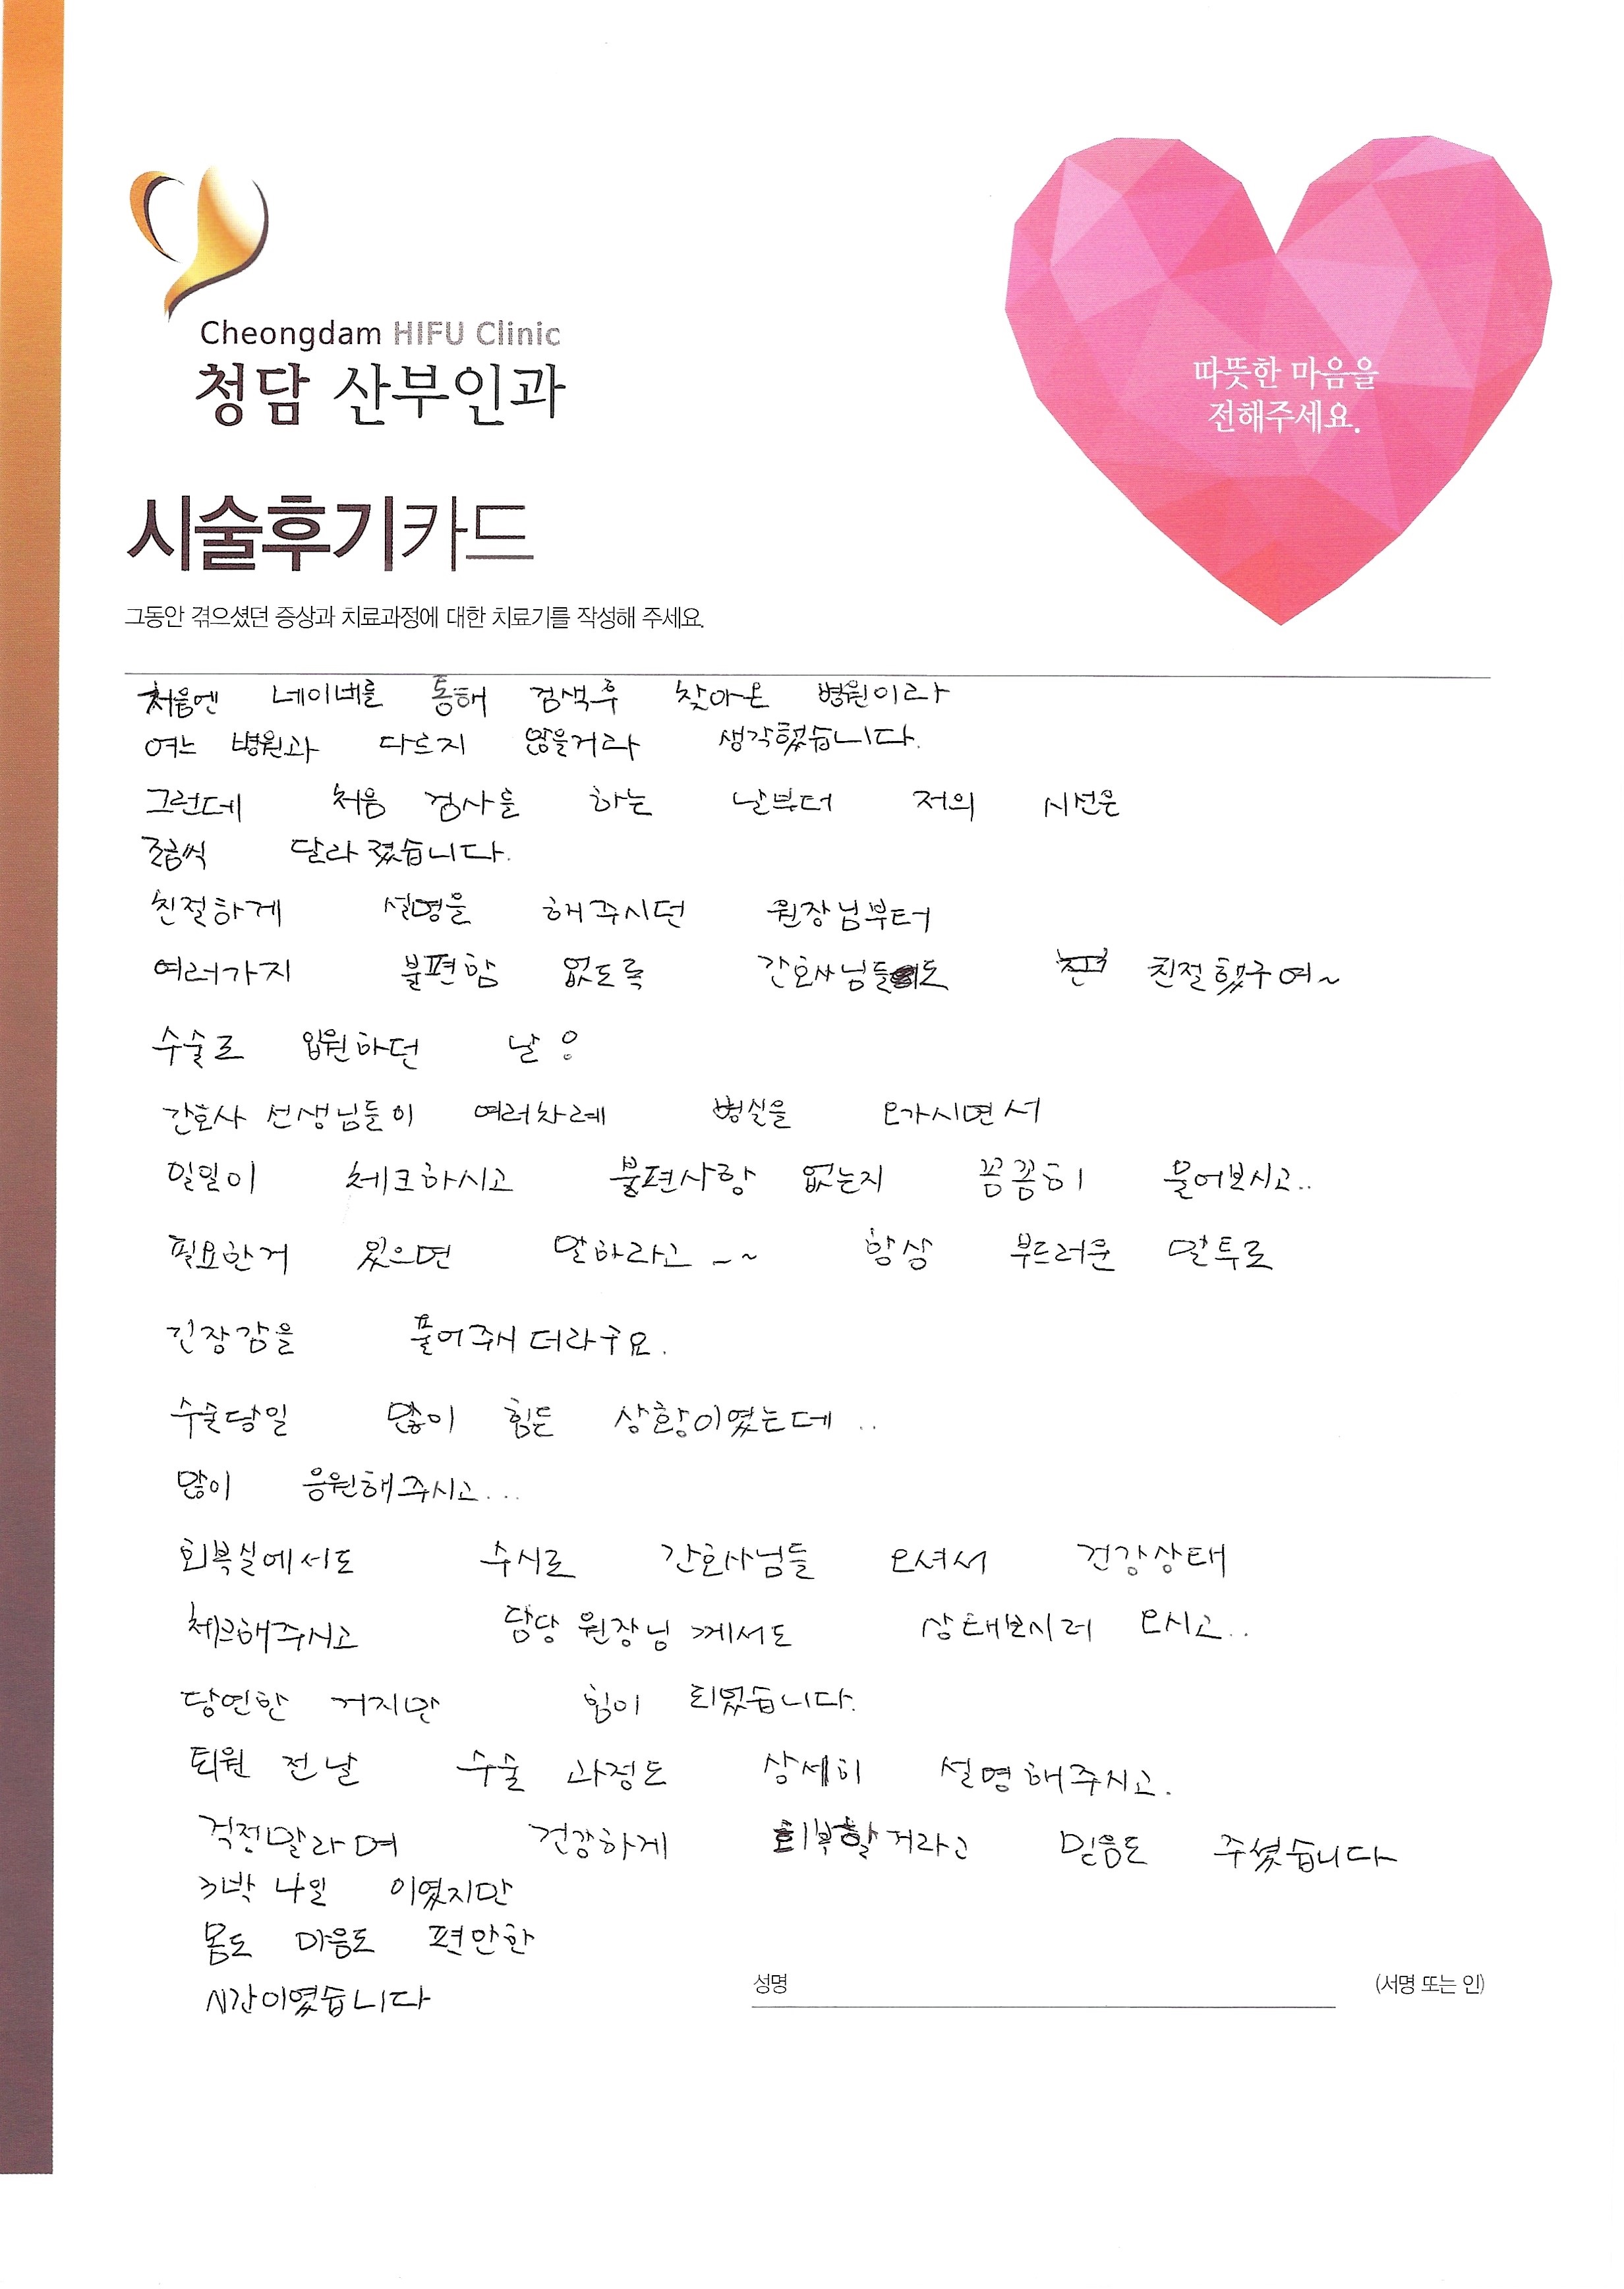 Cheongdam HIFU Clinic
청담 산부인과
따뜻한 마음을
전해주세요.
시술후기카드
그동안 겪으셨던 증상과 치료과정에 대한 치료기를 작성해 주세요.
처음엔 네이버를 통해 검색후 찾아온 병원이라
여느 병원과 다르지 않을거라 생각했습니다.
그런데 처음 검사를 하는 날부터 저의 시선은
조금씩 달라졌습니다.
친절하게 설명을 해주시던 원장님부터
여러가지 불편함 없도록 간호사님들도 친절했구여~
수술로 입원하던 날
간호사 선생님들이 여러차례 병실을 오가시면서
일일이 체크하시고 불편사항 없는지 꼼꼼히 물어보시고..
필요한거 있으면 말하라고 -~ 항상 부드러운 말투로
긴장감을 풀어주시더라구요.
수술당일 많이 힘든 상황이였는데 ..
많이 응원해주시고...
회복실에서도 수시로 간호사님들 오셔서 건강상태
체크해주시고 담당 원장님께서도 상태보시러 오시고..
당연한 거지만 힘이 되었습니다.
퇴원 전날 수술 과정도 상세히 설명해주시고.
걱정말라며 건강하게 회복할거라고 믿음도 주셨습니다
3박 4일 이였지만
몸도 마음도 편안한
시간이였습니다
성명 (서명 또는 인)